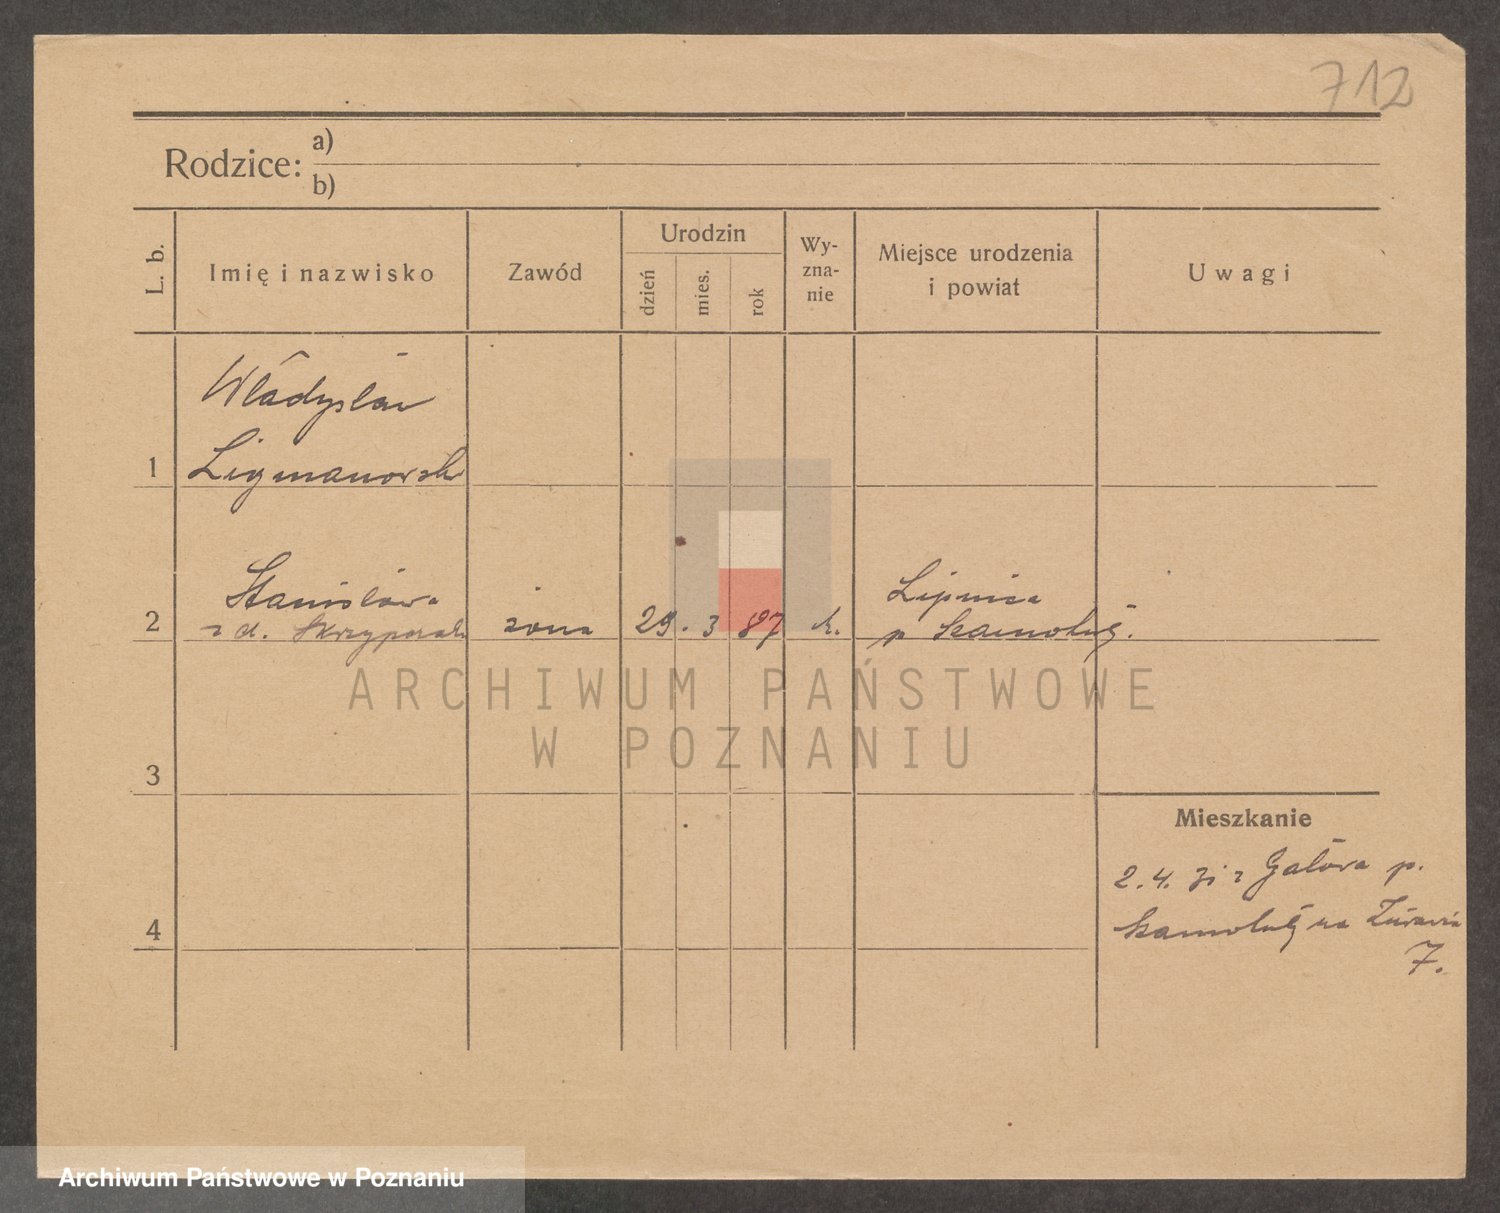 712
Rodzice: a)
b)
L. b.
Imię i nazwisko
Zawód
Urodzin
dzień
mies.
rok
Wy-
zna-
nie
Miejsce urodzenia
i powiat
Uwagi
Władysław
1 Ligmanowski
Stanisława
2 z d. żona 29. 3 87 k. Lipnica
p Szamotuły.
ARCHIWUM PAŃSTWOWE
W POZNANIU
3
Mieszkanie
2.4. z p.
4 Szamotuły na
7.
Archiwum Państwowe w Poznaniu